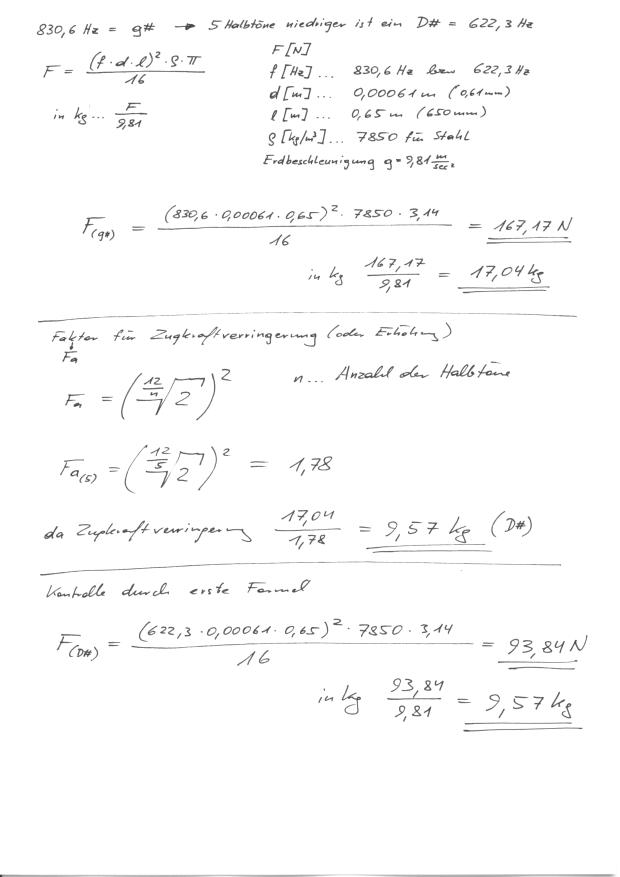 830,6 Hz = g# → 5 Halbtöne niedriger ist ein D# = 622,3 Hz
F = (f · d · l)² · ρ · π / 16
in kg ... F / 9,81
F [N]
f [Hz] ... 830,6 Hz bzw 622,3 Hz
d [m] ... 0,00061 m (0,61mm)
l [m] ... 0,65 m (650 mm)
ρ [kg/m³] ... 7850 für Stahl
Erdbeschleunigung g = 9,81 m/sec²
F(g#) = (830,6 · 0,00061 · 0,65)² · 7850 · 3,14 / 16 = 167,17 N
in kg 167,17 / 9,81 = 17,04 kg
Faktor für Zugkraftverringerung (oder Erhöhung)
↓
Fa
Fa = (12/n√2)² n ... Anzahl der Halbtöne
Fa(5) = (12/5√2)² = 1,78
da Zugkraftverringerung 17,04 / 1,78 = 9,57 kg (D#)
Kontrolle durch erste Formel
F(D#) = (622,3 · 0,00061 · 0,65)² · 7850 · 3,14 / 16 = 93,84 N
in kg 93,84 / 9,81 = 9,57 kg